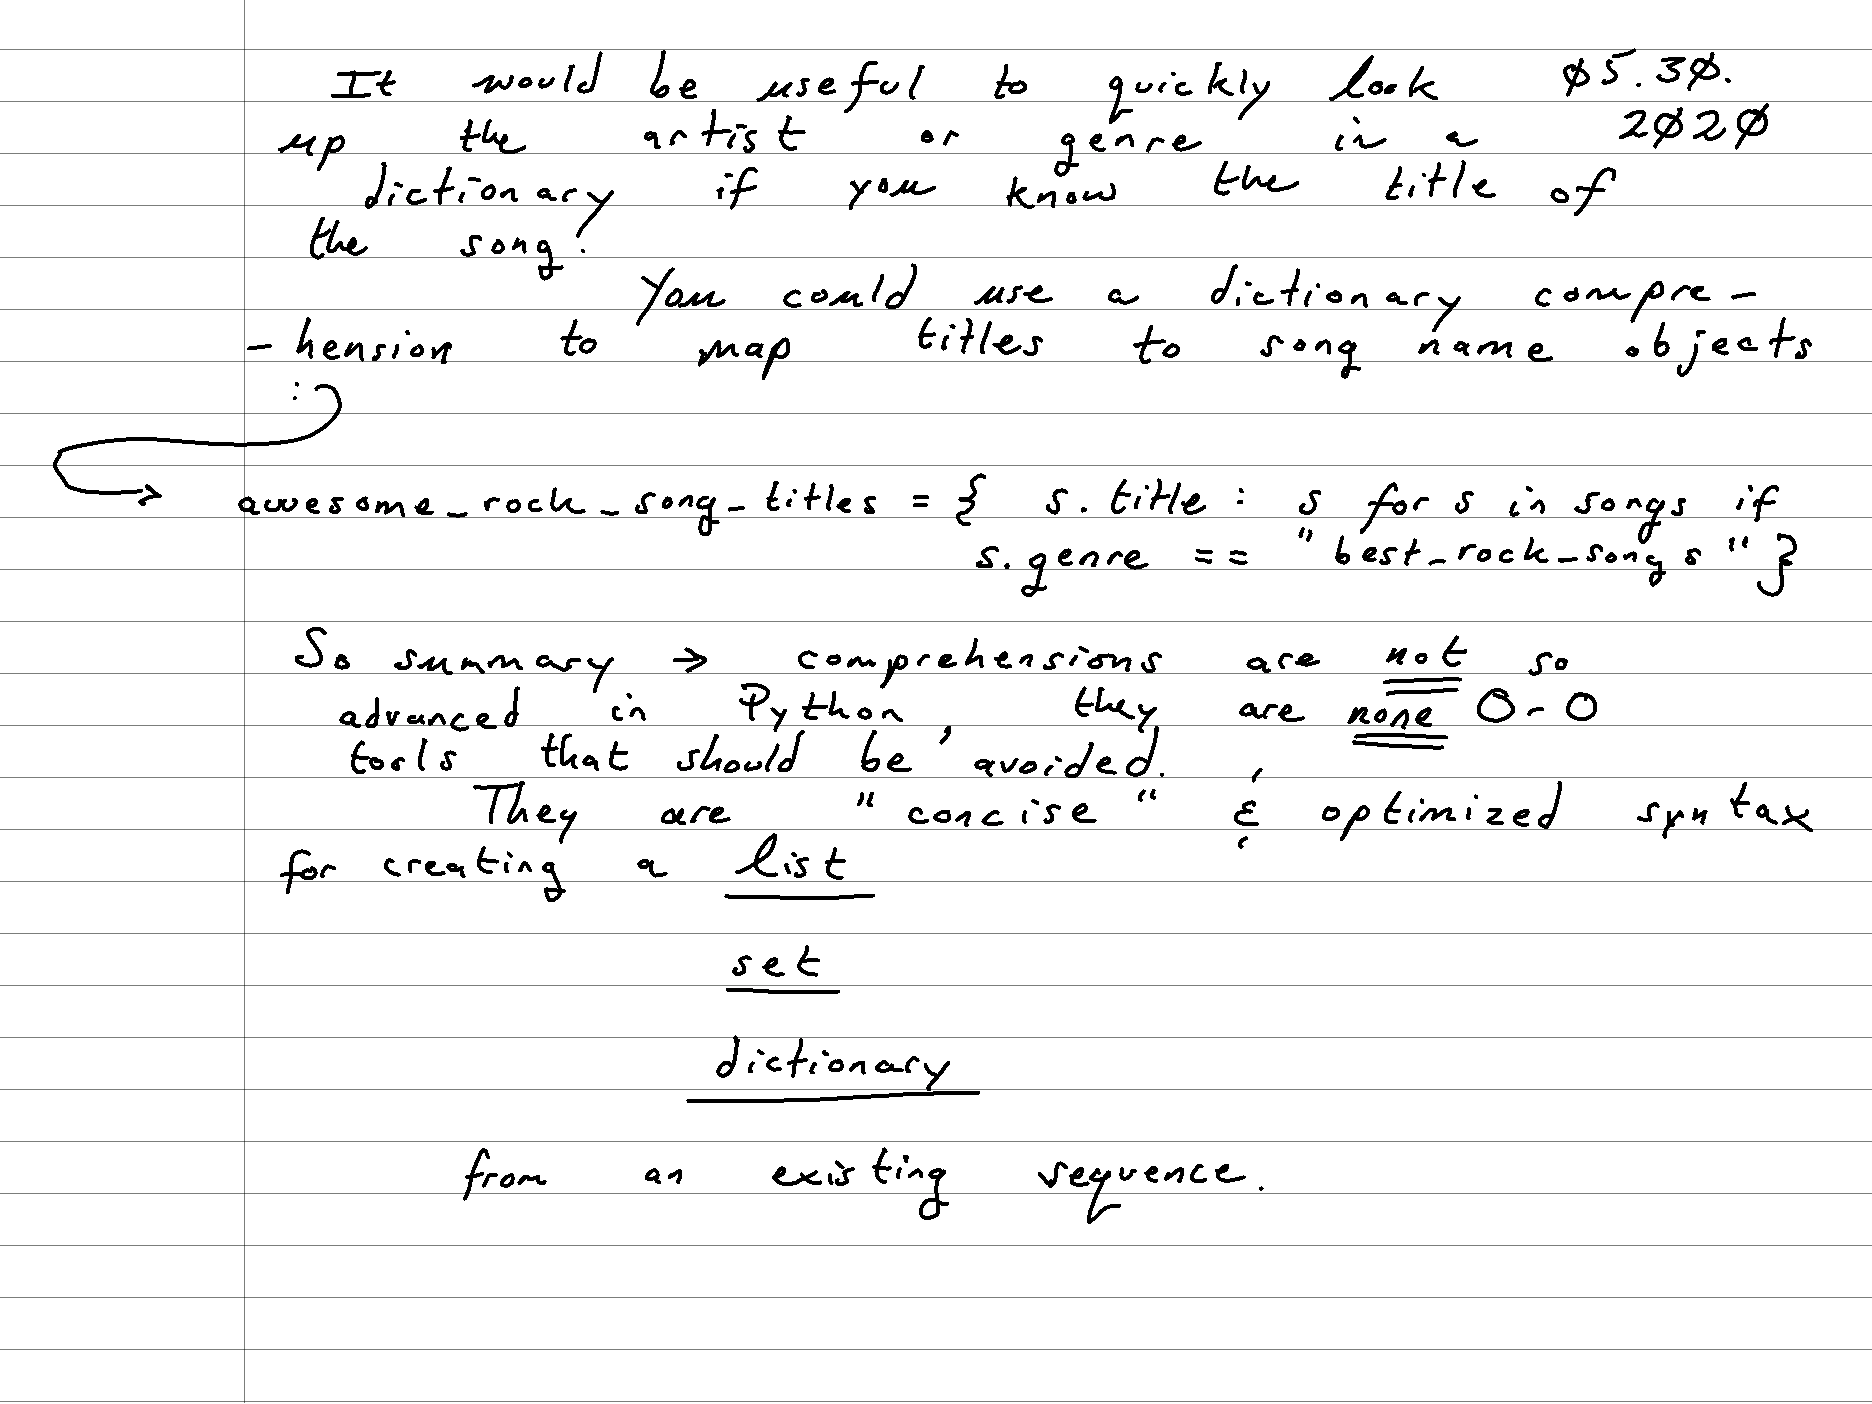 It would be useful to quickly look 05.30.
up the artist or genre in a 2020
dictionary if you know the title of
the song!
You could use a dictionary compre-
-hension to map titles to song name objects
:
awesome_rock_song_titles = { s.title : s for s in songs if
s.genre == "best_rock_songs" }
So summary → comprehensions are not so
advanced in Python, they are none O-O
tools that should be avoided.
They are "concise" & optimized syntax
for creating a list
set
dictionary
from an existing sequence.